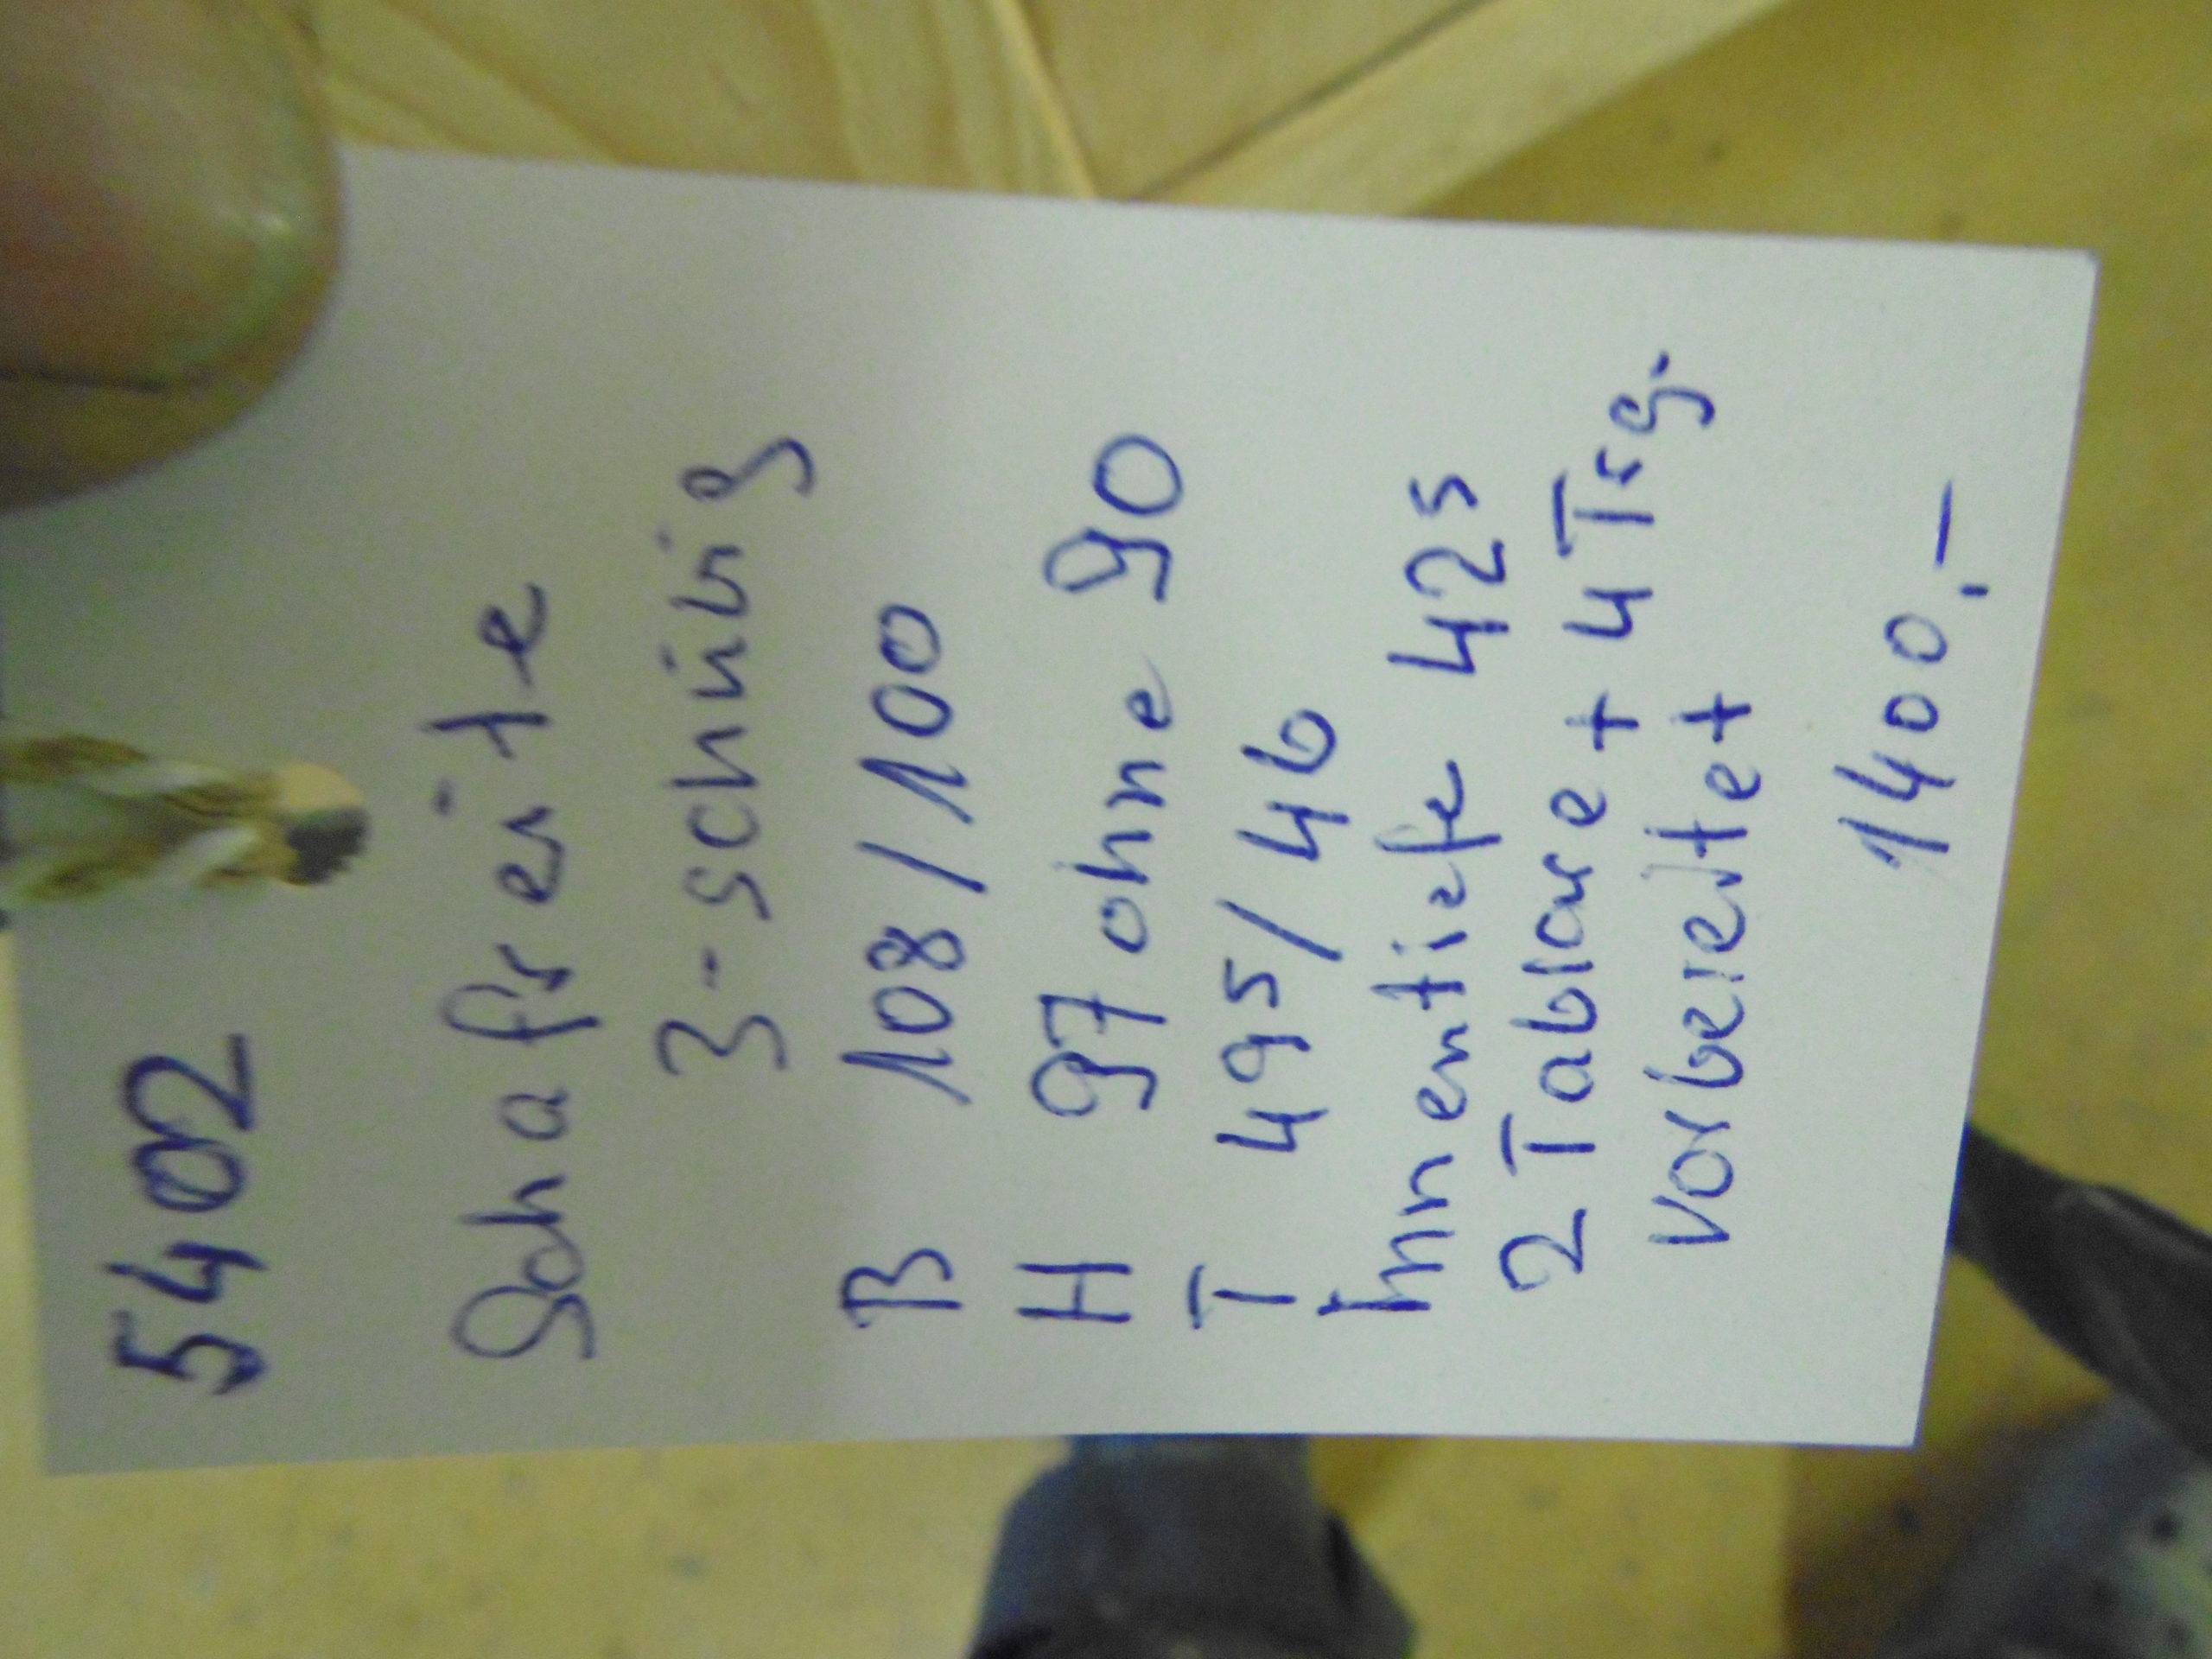 5402
Schafreite
3-schübig
B 108/100
H 97 ohne 90
T 495/46
Innentiefe 425
2 Tablare + 4 Tsg.
vorbereitet
1400.-